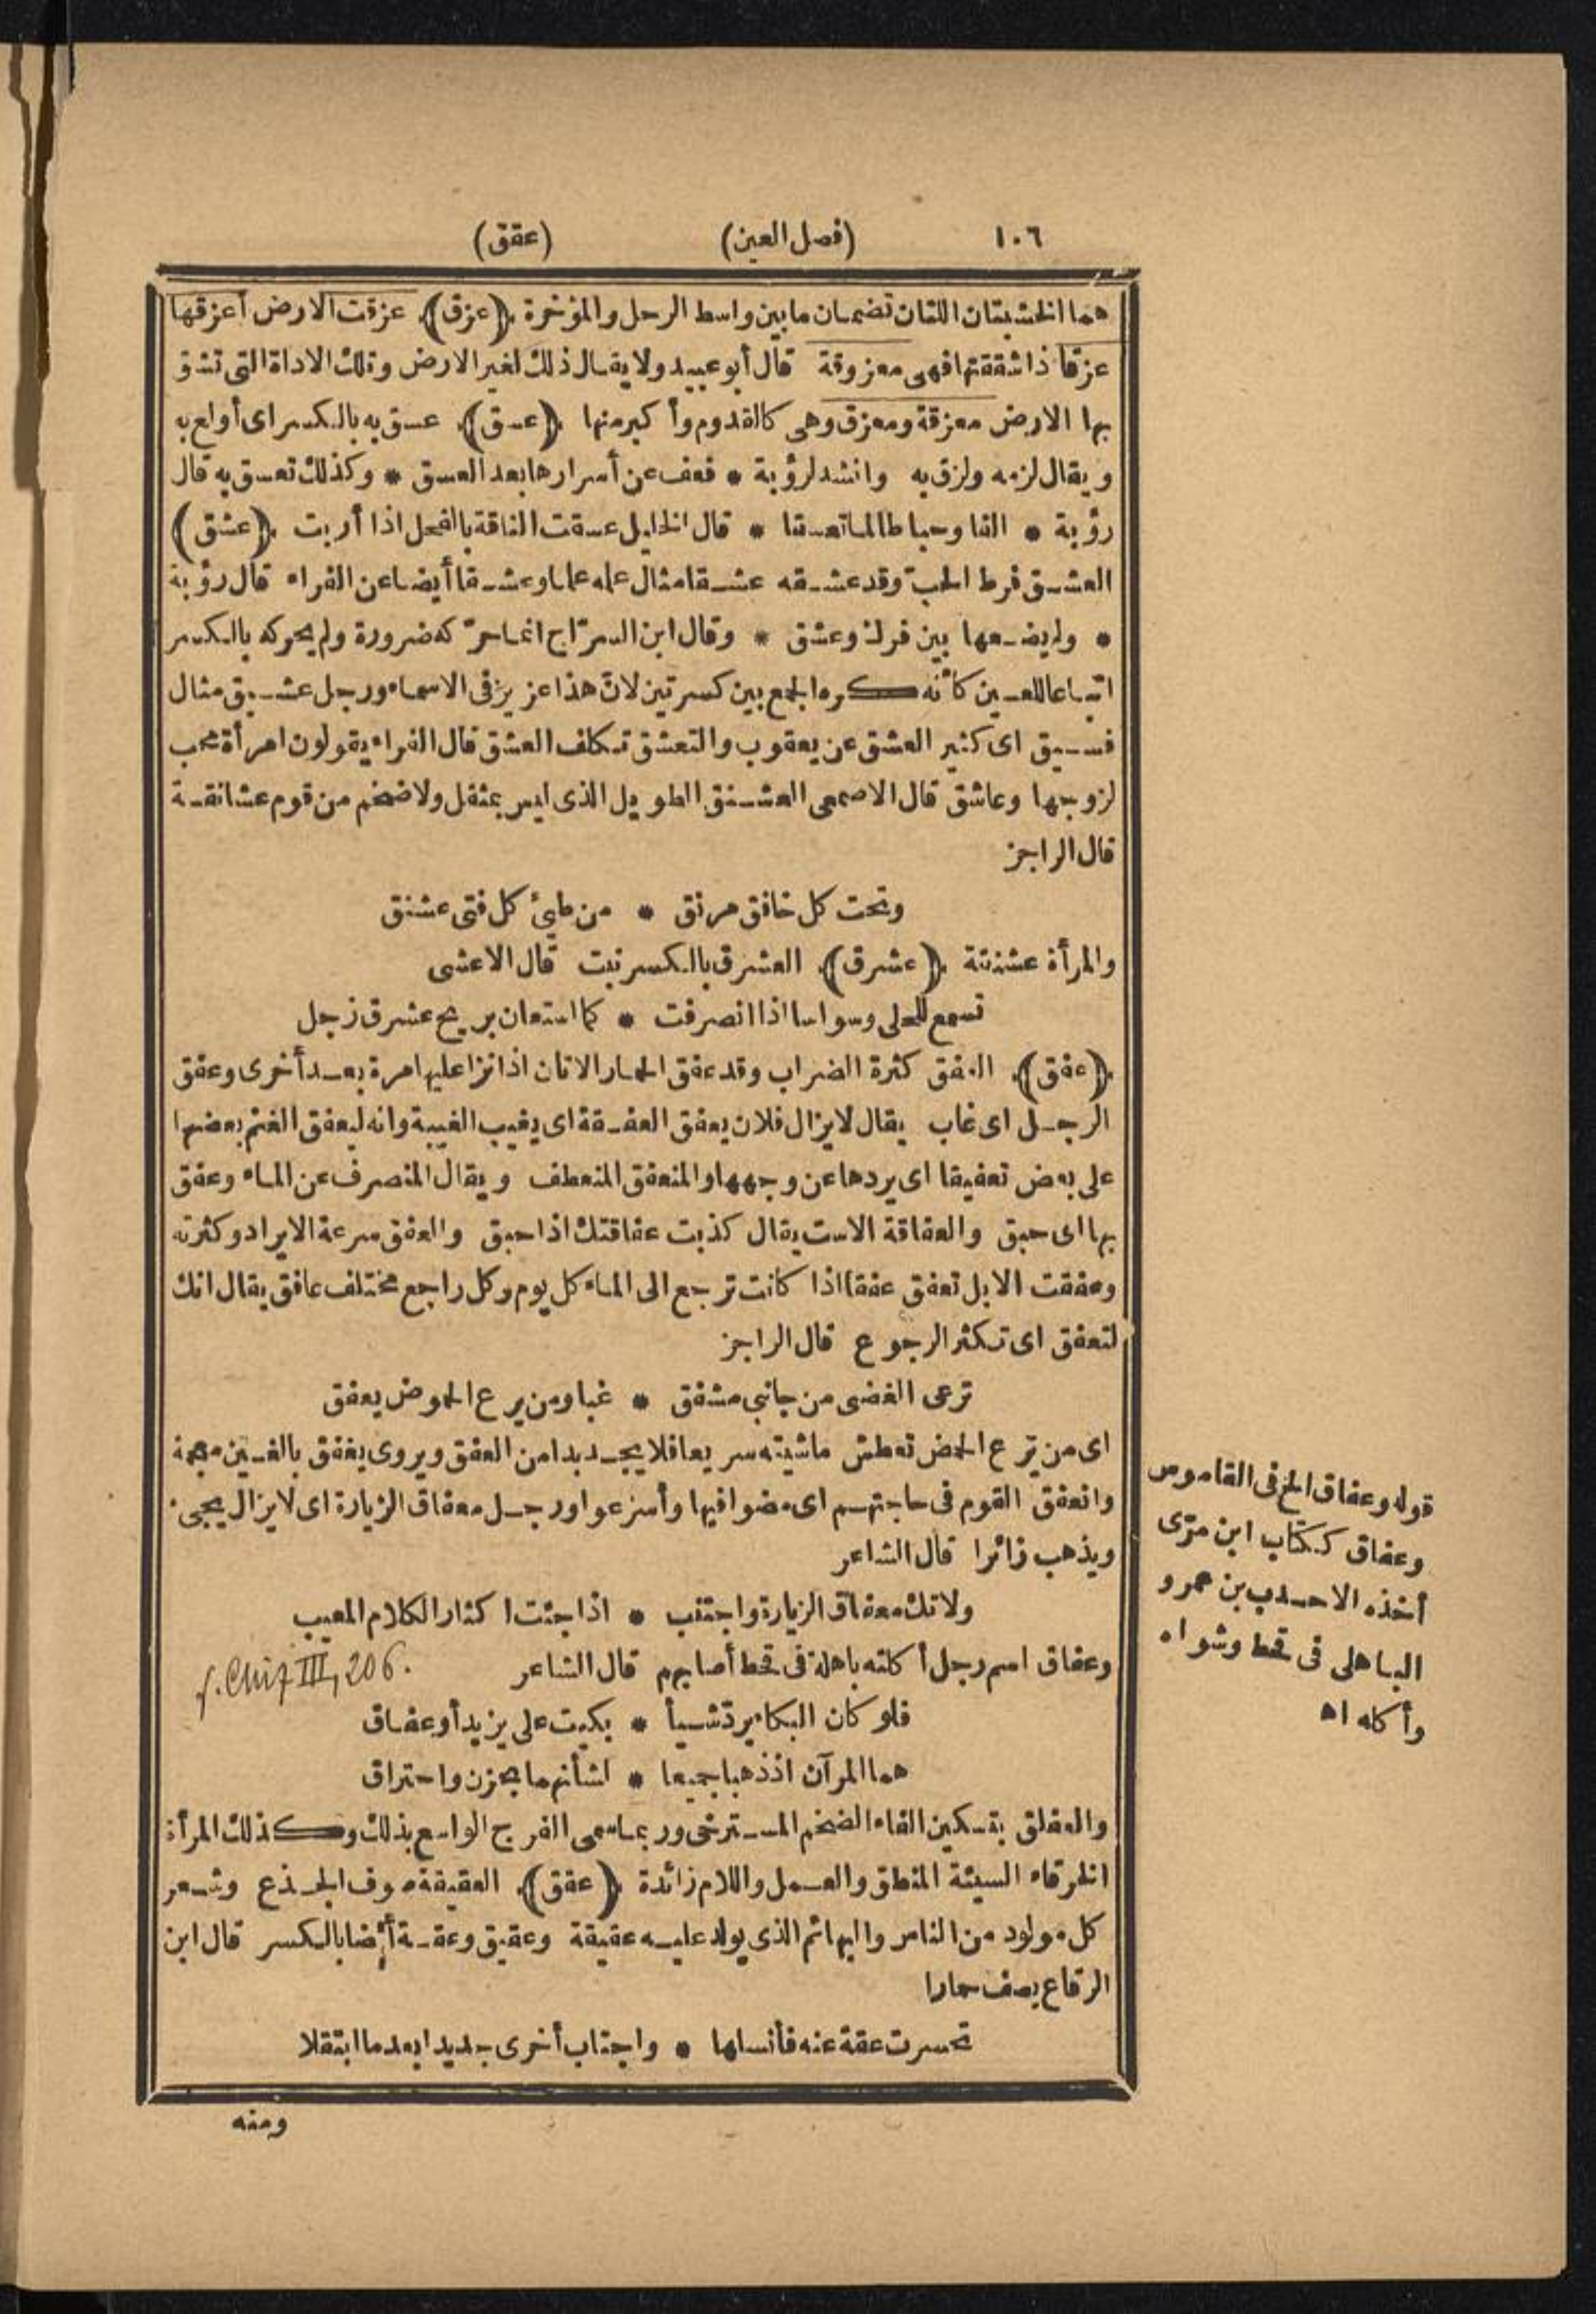 ١٠٦ (فصل العين) (عقق)
هما الخشبتان اللتان تضمان ما بين واسط الرحل والمؤخرة (عزق) عزقت الارض أعزقها
عزقا اذا شققتها فهى معزوقة قال أبو عبيد ولا يقال ذلك لغير الارض وتلك الاداة التى تشق
بها الارض معزقة ومعزق وهى كالقدوم وأكبر منها (عسق) عسق به بالكسر اى أولع به
ويقال لزمه ولزق به وانشد لرؤبة * فعف عن أسرارها بعد العسق * وكذلك تعسق به قال
رؤبة * الفا وحبا طالما تعسقا * قال الخليل عسقت الناقة بالفحل اذا أربت (عشق)
العشق فرط الحبّ وقد عشقه عشقا مثال علمه علما وعشقا أيضا عن الفراء قال رؤبة
* ولم يضعها بين فرك وعشق * وقال ابن السرّاج انما حرّكه ضرورة ولم يحركه بالكسر
اتباعا للعين كأنه كره الجمع بين كسرتين لانّ هذا عزيز فى الاسماء ورجل عشيق مثال
فسيق اى كثير العشق عن يعقوب والتعشق تكلف العشق قال الفراء يقولون امرأة محب
لزوجها وعاشق قال الاصمعى العشنق الطويل الذى ليس بمثقل ولا ضخم من قوم عشانقة
قال الراجز
وتحت كل خافق مرنق * من طيئ كل فتى عشنق
والمرأة عشنقة (عشرق) العشرق بالكسر نبت قال الاعشى
تسمع للحلى وسواسا اذا انصرفت * كما استعان بريح عشرق زجل
(عفق) العفق كثرة الضراب وقد عفق الحمار الاتان اذا نزا عليها مرة بعد أخرى وعفق
الرجل اى غاب يقال لا يزال فلان يعفق العفقة اى يغيب الغيبة وانه ليعفق الغنم بعضها
على بعض تعفيقا اى يردها عن وجهها والمنعفق المنعطف ويقال المنصرف عن الماء وعفق
بها اى حبق والعفاقة الاست يقال كذبت عفاقتك اذا حبق والعفق سرعة الايراد وكثرته
وعفقت الابل تعفق عفقا اذا كانت ترجع الى الماء كل يوم وكل راجع مختلف عافق يقال انك
لتعفق اى تكثر الرجوع قال الراجز
ترعى الغضى من جانبى مشفق * غبا ومن يرع الحموض يعفق
اى من يرع الحمض تعطش ماشيته سريعا فلا يجد بدا من العفق ويروى يغفق بالغين معجمة
وانعفق القوم فى حاجتهم اى مضوا فيها وأسرعوا ورجل معفاق الزيارة اى لا يزال يجىء
ويذهب زائرا قال الشاعر
ولا تك معفاق الزيارة واجتنب * اذا جئت اكثار الكلام المعيب
وعفاق اسم رجل أكلته باهلة فى قحط أصابهم قال الشاعر
فلو كان البكاء يردّ شيأ * بكيت على يزيد أو عفاق
هما المرآن اذ ذهبا جميعا * لشأنهما بحزن واحتراق
والعفلق بتسكين الفاء الضخم المسترخى وربما سمى الفرج الواسع بذلك وكذلك المرأة
الخرقاء السيئة المنطق والعمل واللام زائدة (عقق) العقيقة صوف الجذع وشعر
كل مولود من الناس والبهائم الذى يولد عليه عقيقة وعقيق وعقة أيضا بالكسر قال ابن
الرقاع يصف حمارا
تحسرت عقة عنه فأنسلها * واجتاب أخرى جديدا بعدما ابتقلا
ومنه
قوله وعفاق الخ فى القاموس
وعفاق ككتاب ابن مرّى
أخذه الاحدب بن عمرو
الباهلى فى قحط وشواه
وأكله اه
III, 206.